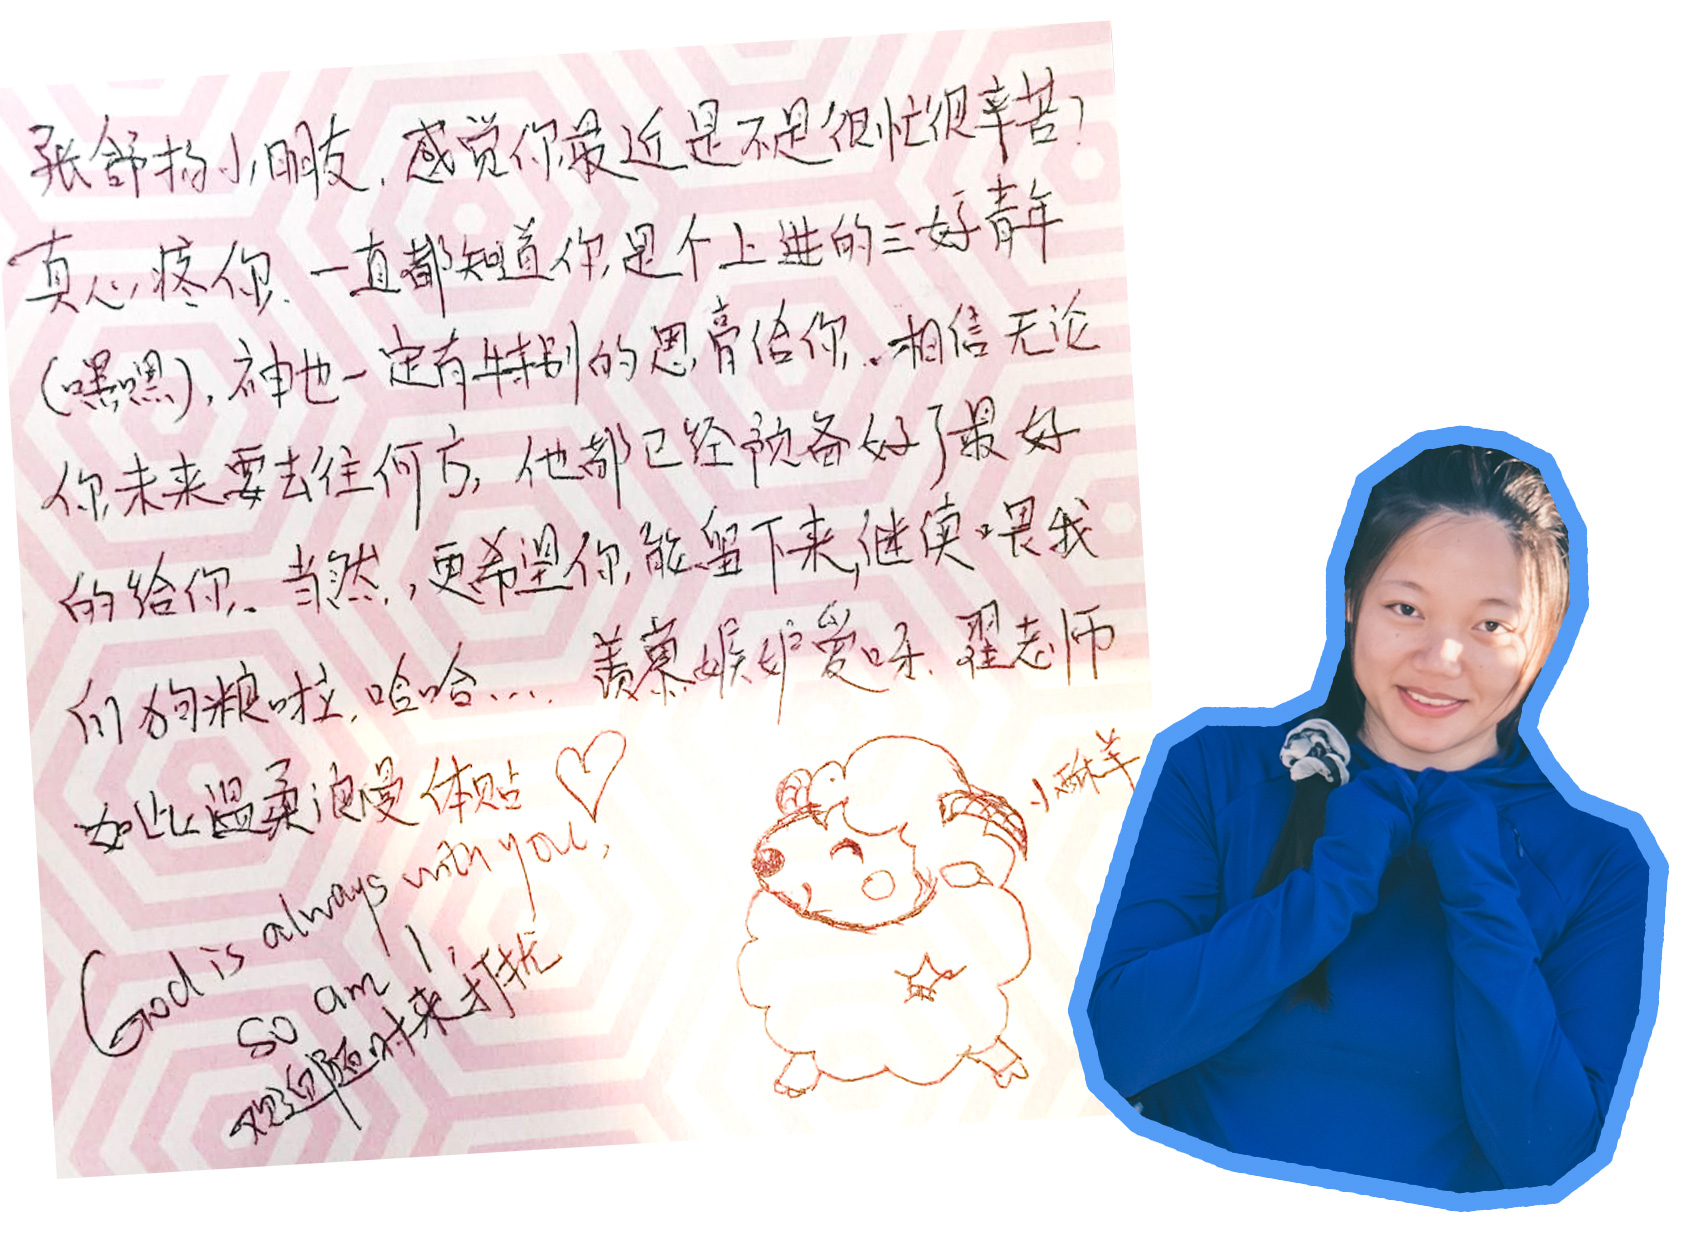 张舒扬小朋友，感觉你最近是不是很忙很辛苦？
真心疼你、一直都知道你是个上进的三好青年
(嘿嘿)，神也一定有特别的恩膏给你、相信无论
你未来要去往何方，他都已经预备好了最好
的给你、当然，更希望你能留下来，继续喂我
们狗粮啦、哈哈… 羡慕嫉妒爱呀、翟老师
如此温柔浪漫体贴
小酥羊
God is always with you,
so am I
欢迎随时来打扰